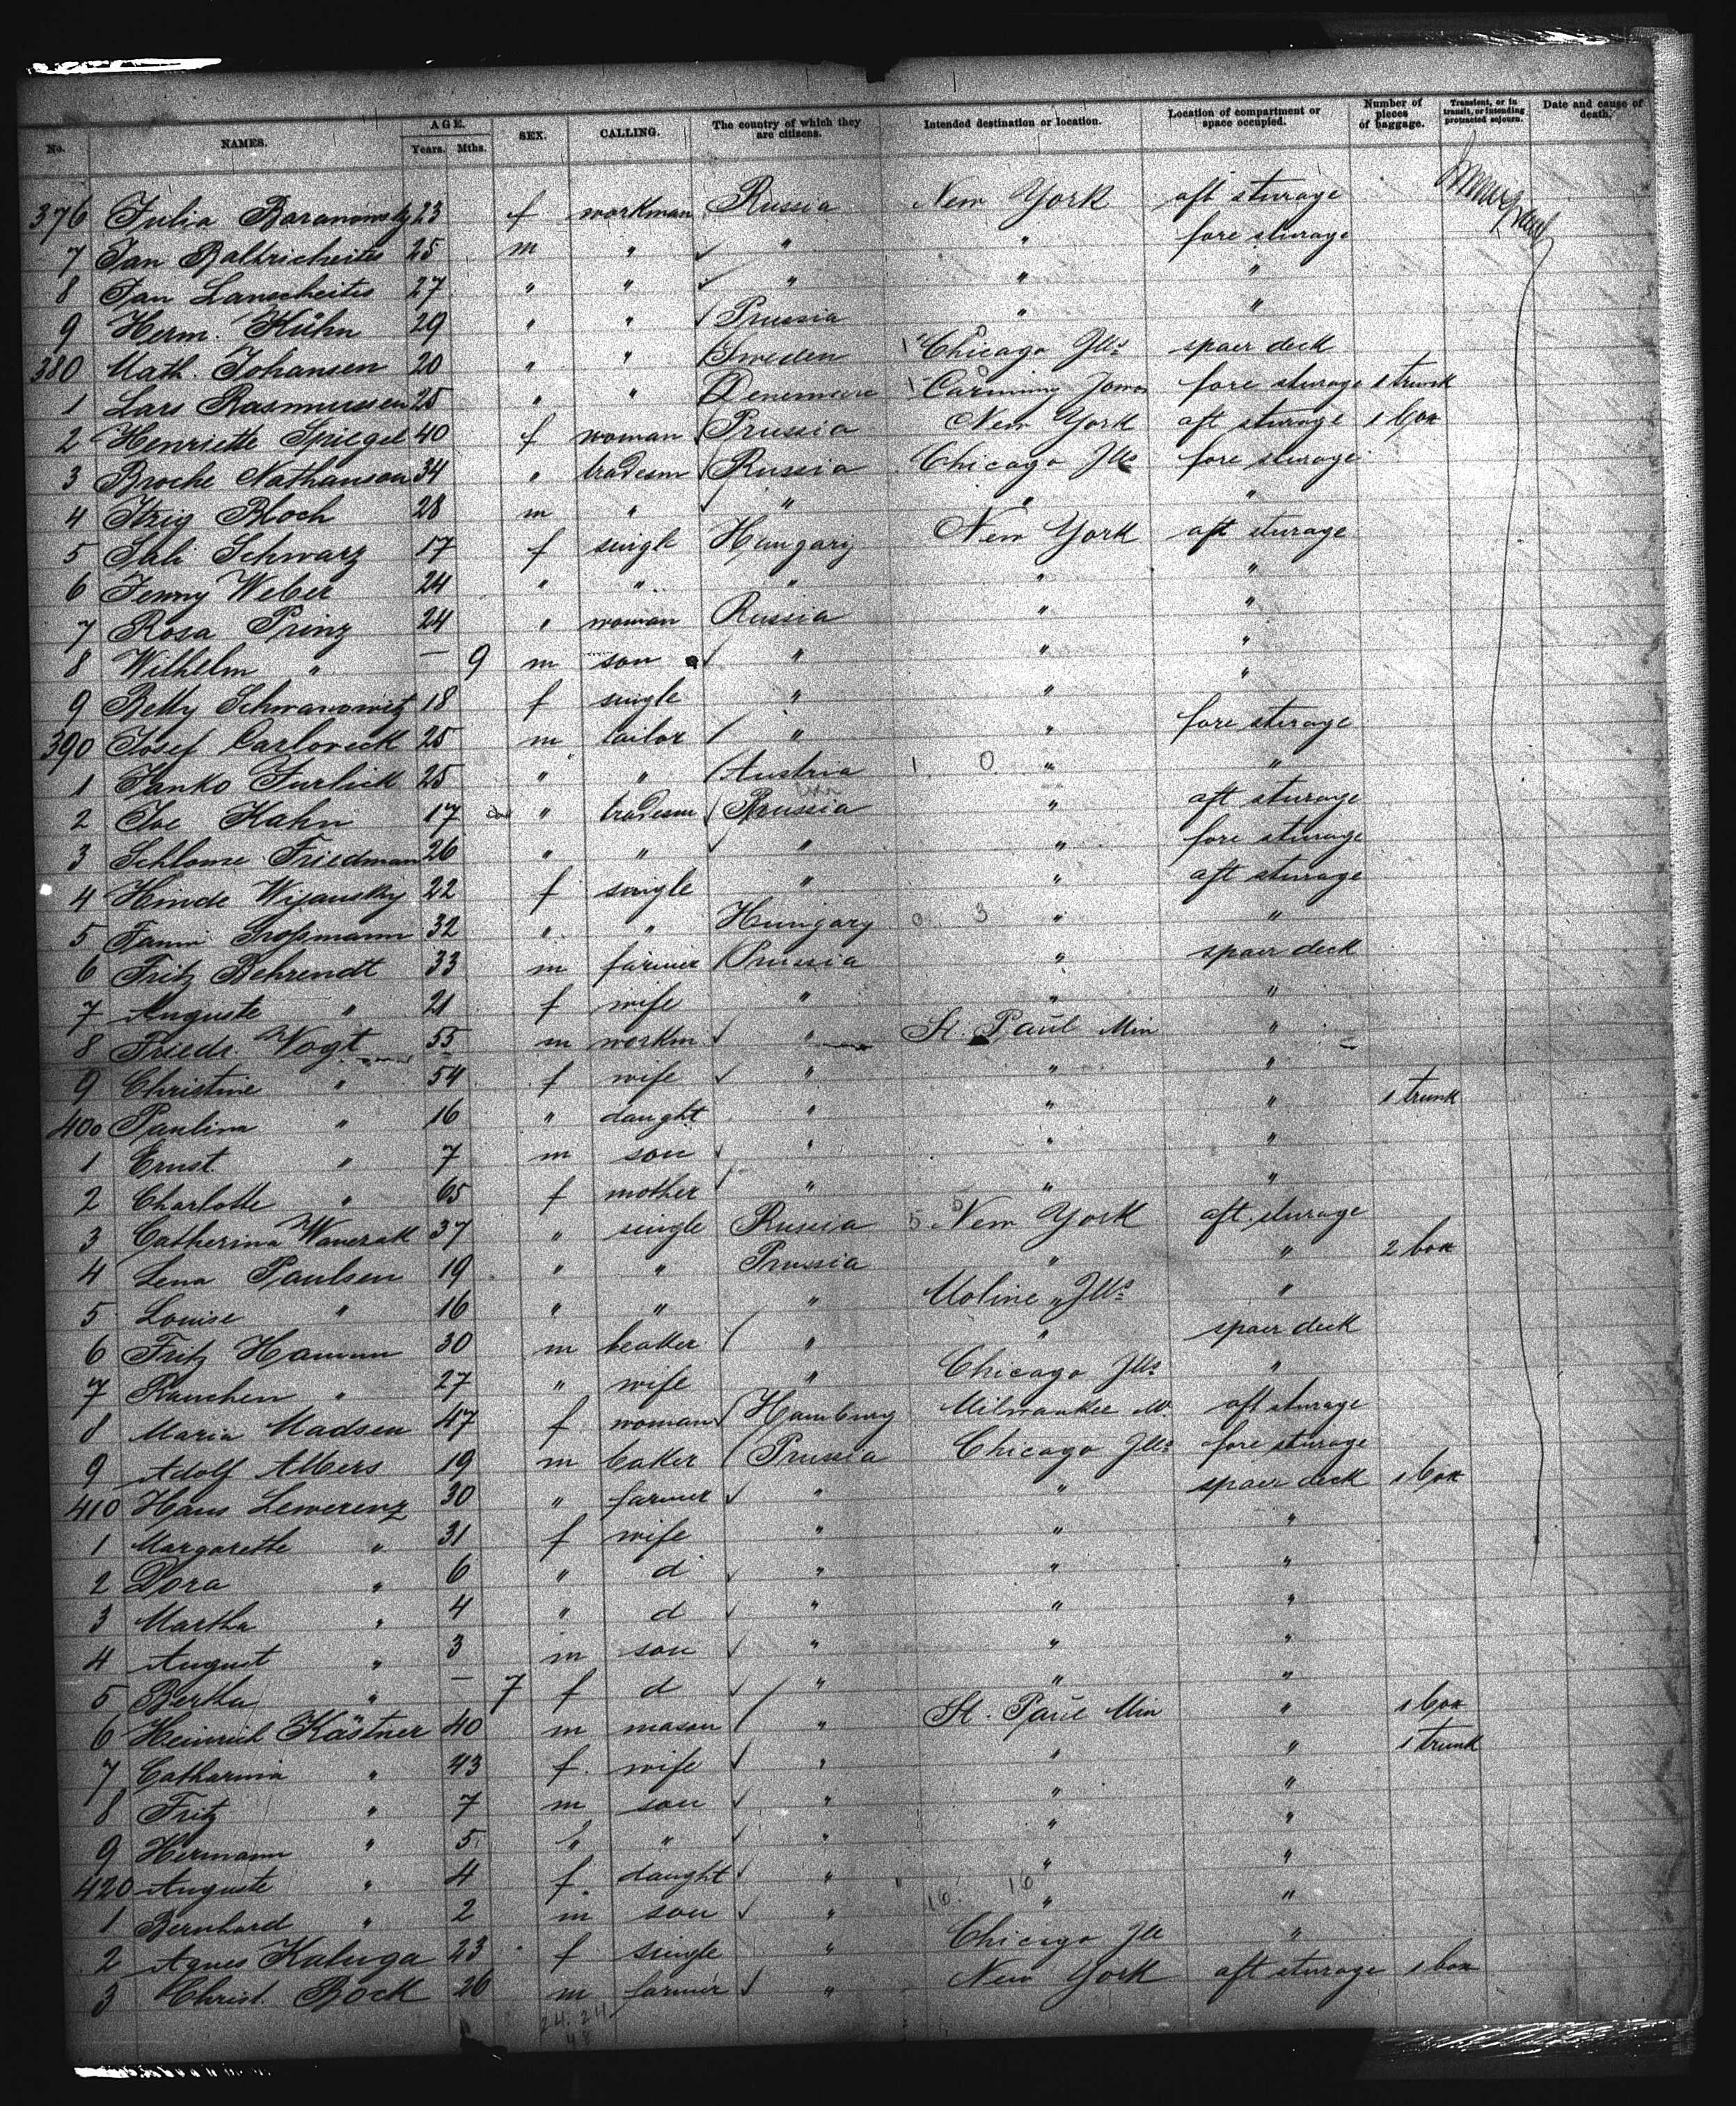 No. NAMES. AGE. Years. Mths. SEX. CALLING. The country of which they are citizens. Intended destination or location. Location of compartment or space occupied. Number of pieces of baggage. Transient, or in transit, or intending protracted sojourn. Date and cause of death.
376 Julia Baranowsky 23 f workman Russia New York aft sturage
7 Jan Baltricheites 25 m " " " fore sturage
8 Jan Lanscheites 27 " " " " "
9 Herm. Kühn 29 " " Prussia " "
380 Math. Johansen 20 " " Sweden Chicago Ills spaer deck
1 Lars Rasmussen 25 " " Denemare Jowa fore sturage 1 trunk
2 Henriette Spiegel 40 f woman Prussia New York aft sturage 1 box
3 Broche Nathanson 34 " tradesm Russia Chicago Ills fore sturage
4 Itzig Bloch 28 m " " " "
5 Sali Schwarz 17 f single Hungary New York aft sturage
6 Jenny Weber 24 " " " " "
7 Rosa Prinz 24 " woman Russia " "
8 Wilhelm " — 9 m son " " "
9 Betty Schwanowitz 18 f single " " "
390 Josef Carloveck 25 m tailor " " fore sturage
1 Janko Furlick 25 " " Austria 1 0 " "
2 Joe Kahn 17 " tradesm Russia " aft sturage
3 Schlome Friedman 26 " " " " fore sturage
4 Hinde Wijansky 22 f single " " aft sturage
5 Fanni Großmann 32 " " Hungary 0 3 " "
6 Fritz Behrendt 33 m farmer Prussia " spaer deck
7 Auguste " 21 f wife " " "
8 Friedr. Vogt 55 m workm " St. Paul Min "
9 Christine " 54 f wife " " "
400 Paulina " 16 " daught " " " 1 trunk
1 Ernst " 7 m son " " "
2 Charlotte " 65 f mother " " "
3 Catherina Wanerak 37 " single Russia 5 5 New York aft sturage
4 Lena Paulsen 19 " " Prussia " " 2 box
5 Louise " 16 " " " Moline Ills "
6 Fritz Hamann 30 m beaker " " spaer deck
7 Rauchen " 27 " wife " Chicago Ills "
8 Maria Madsen 47 f woman Hamburg Milwaukee W. aft sturage
9 Adolf Albers 19 m baker Prussia Chicago Ills fore sturage
410 Hans Lewerenz 30 " farmer " " spaer deck 1 box
1 Margarethe " 31 f wife " " "
2 Dora " 6 " d " " "
3 Martha " 4 " d " " "
4 August " 3 m son " " "
5 Bertha " — 7 f d " " "
6 Heinrich Kästner 40 m mason " St. Paul Min " 1 box
7 Catharina " 43 f wife " " " 1 trunk
8 Fritz " 7 m son " " "
9 Hermann " 5 " " " " "
420 Auguste " 4 f daught " " "
1 Bernhard " 2 m son " 16 16 " "
2 Agnes Kaluga 23 f single " Chicago Ill "
3 Christ. Bock 26 m farmer " New York aft sturage 1 box
24. 24
48